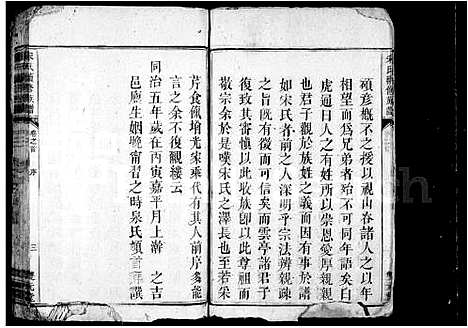 碩彥概不之援以視山春諸人之以年
相望而爲兄弟者殆不可同年語矣白
虎通曰人之有姓所以崇恩愛厚親親
也君子觀於族姓之義而因有事於譜
如宋氏者前之人深明乎宗法辨親疎
之旨既有以信今而可徵而雲亭諸君子
復致其審慎以此收族即以此尊祖而
敬宗余於是嘆宋氏之澤長也至若采
芹食餼增光宋乘代有其人前序多能
言之余不復覼縷云
同治五年歲在丙寅嘉平月上澣之吉
邑廩生姻晚甯習之時泉氏頓首拜譔
卷之首
序
三